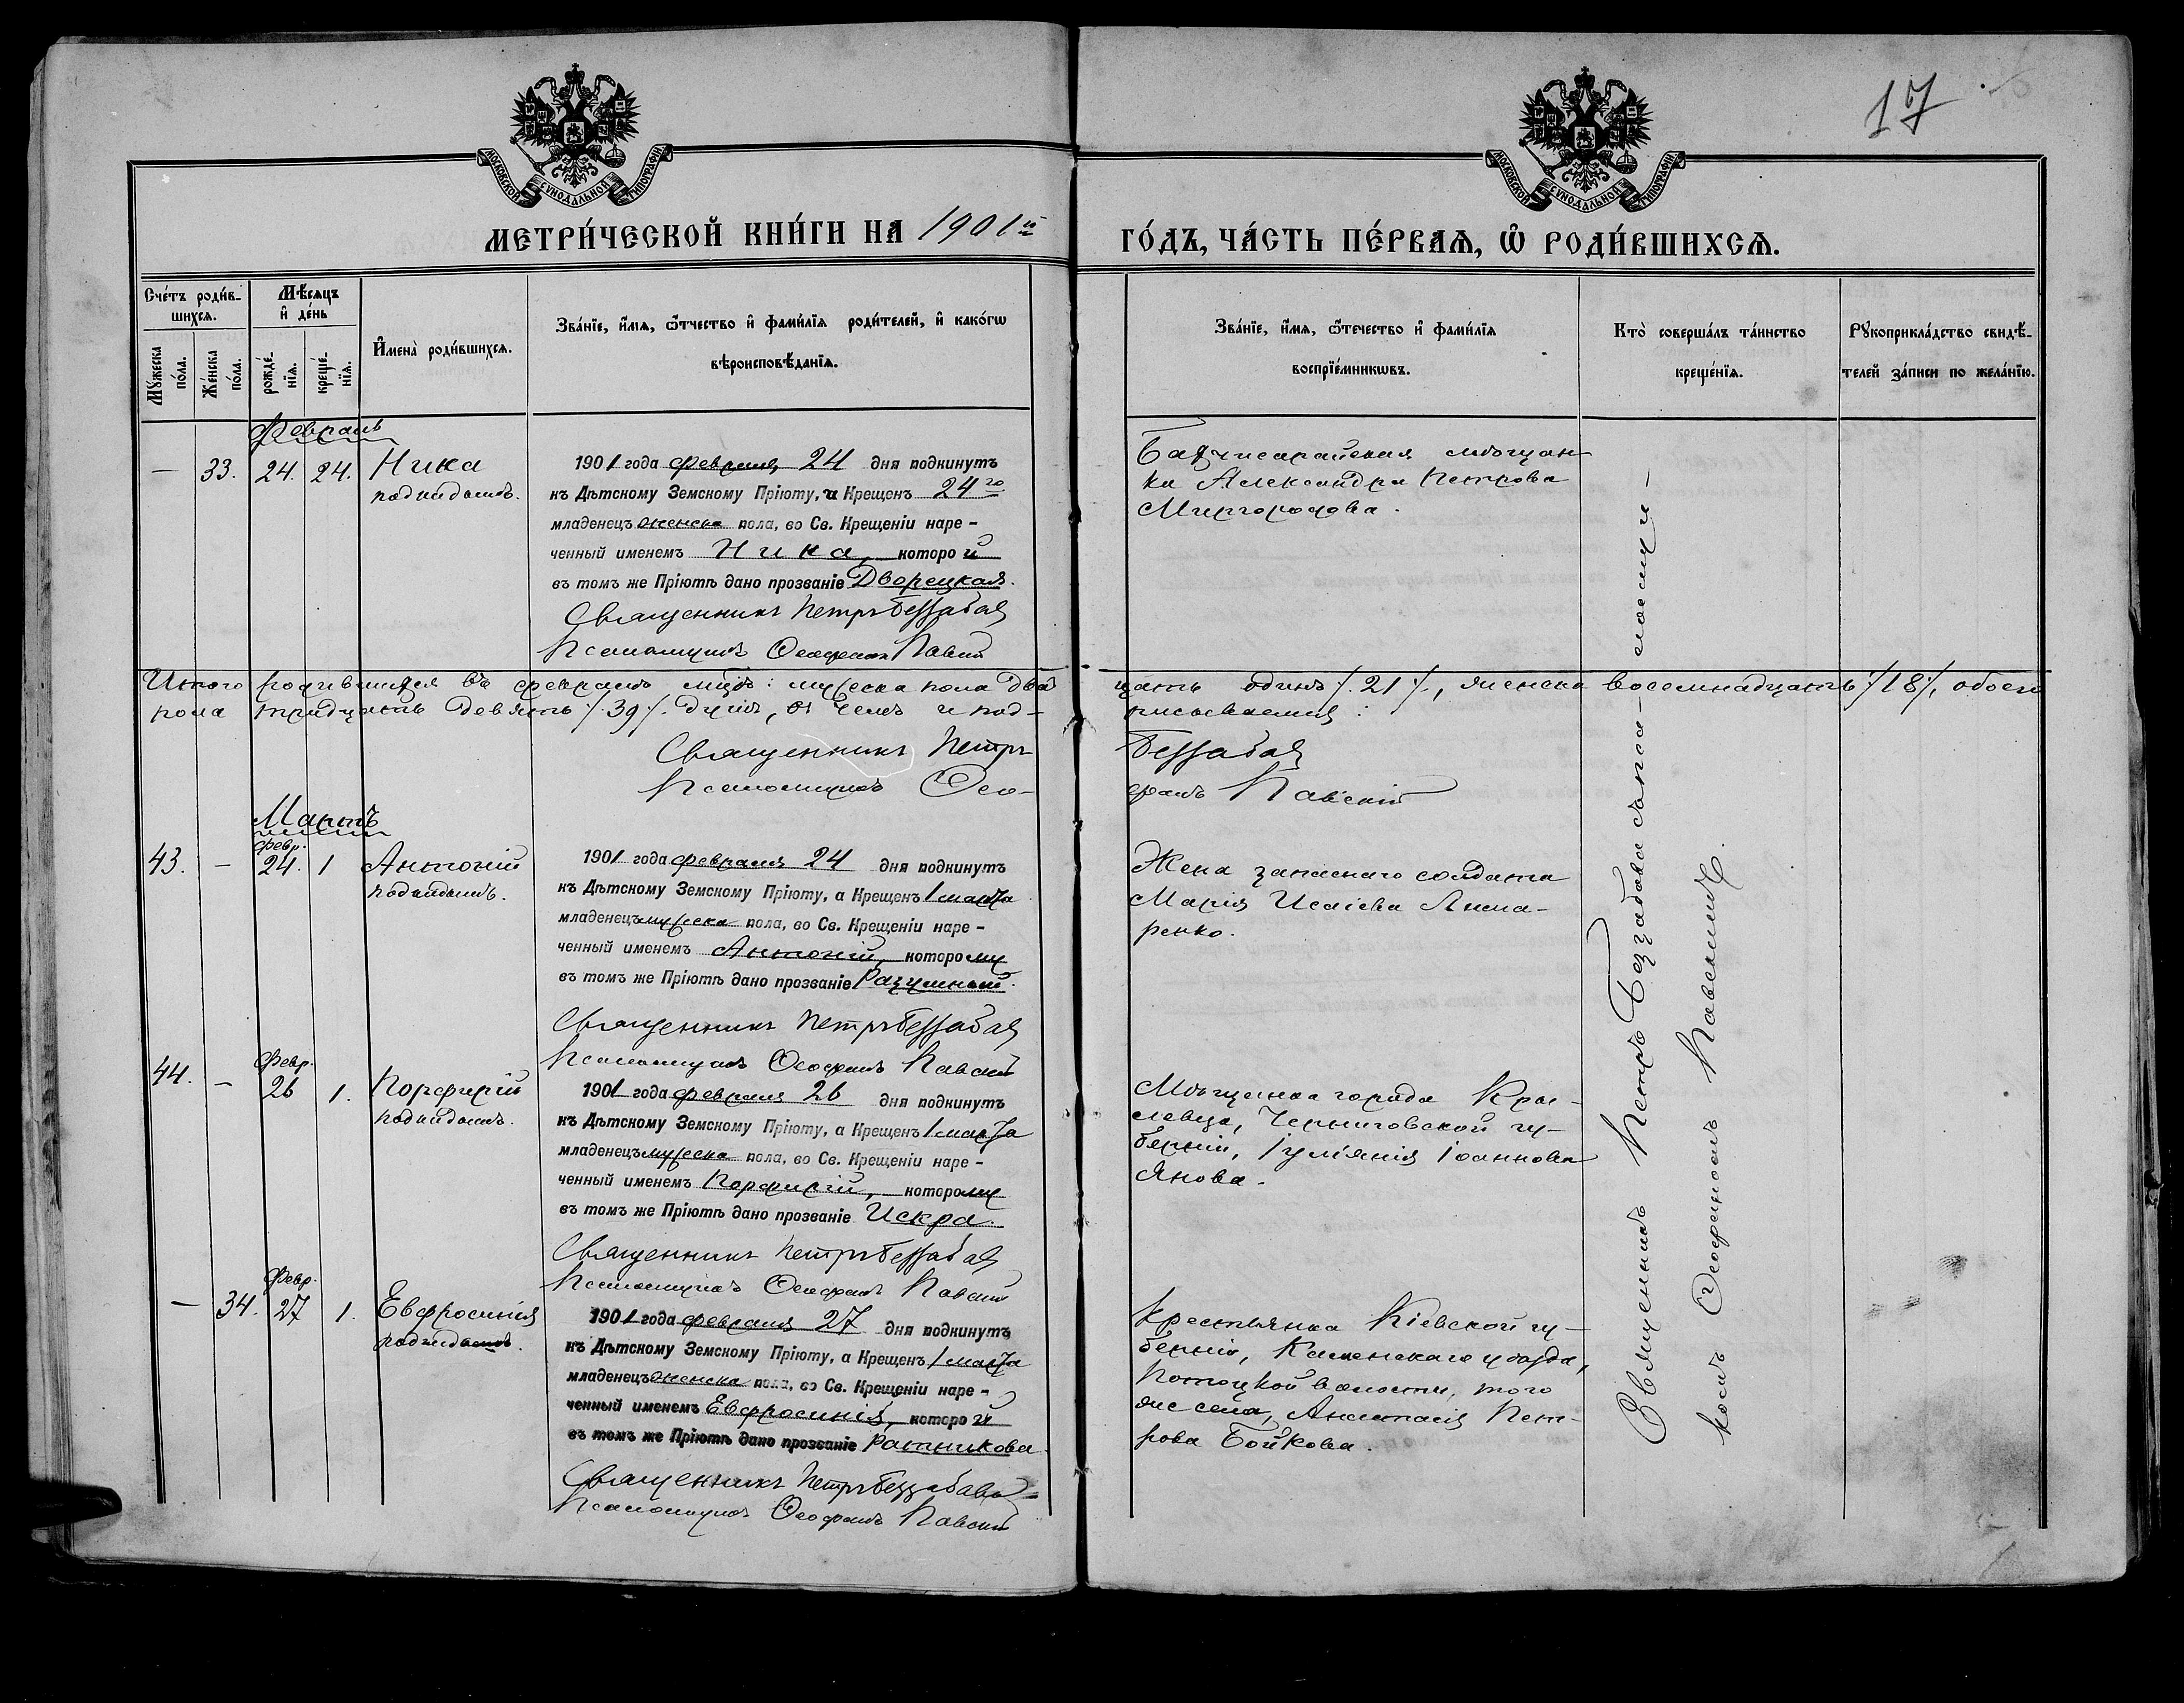 17
МОСКОВСКОЙ СѴНОДАЛЬНОЙ ТИПОГРАФІИ
МОСКОВСКОЙ СѴНОДАЛЬНОЙ ТИПОГРАФІИ
МЕТРИ́ЧЕСКОЙ КНИ́ГИ НА 1901й
ГО́ДЪ, ЧА́СТЬ ПЕ́РВАѦ, Ѡ РОДИ́ВШИХСѦ.
Сче́тъ роди́в-
шихся.
Мꙋ́жеска
по́ла.
Же́нска
по́ла.
Мѣ́сяцъ
и҆ де́нь
рожде́-
нїѧ.
креще́-
нїѧ.
И҆мена̀ роди́вшихсѧ.
Зва́нїе, и҆́мѧ, ѻ҆́тчество и҆ фами́лїѧ роди́телей, и҆ како́гѡ
вѣроисповѣ́данїѧ.
Зва́нїе, и҆́мѧ, ѻ҆́течество и҆ фами́лїѧ
воспрїе́мникѡвъ.
Кто̀ соверша́лъ та́инство
креще́нїѧ.
Рꙋкоприкла́дство свидѣ́-
телей за́писи по жела́нїю.
Февраль
— 33. 24. 24. Ника
подкидышъ.
1901 года февраля 24 дня подкинутъ
къ Дѣтскому Земскому Пріюту, и Крещенъ 24го
младенецъ женска пола, во Св. Крещеніи наре-
ченный именемъ Ника, которой
въ томъ же Пріютѣ дано прозваніе Дворецкая.
Священникъ Петръ Беззабава
Псаломщикъ Ѳеофанъ Павскій
Бахчисарайская мѣщан-
ка Александра Петрова
Миргородова.
Итого родившихся въ февралѣ мцѣ: мужеска пола два
дцать одинъ /.21/., женска восемнадцать /18/, обоего
пола тридцать девять /.39/. душъ, въ чемъ и под-
писываемся:
Священникъ Петръ
Беззабава
Псаломщикъ Ѳео-
фанъ Павскій
Мартъ
43. — февр. 24. 1 Антоній
подкидышъ.
1901 года февраля 24 дня подкинутъ
къ Дѣтскому Земскому Пріюту, а Крещенъ 1 марта
младенецъ мужеска пола, во Св. Крещеніи наре-
ченный именемъ Антоній, которому
въ томъ же Пріютѣ дано прозваніе Разумный.
Священникъ Петръ Беззабава
Псаломщикъ Ѳеофанъ Павскій
Жена запаснаго солдата
Марія Исаіева
44. — Февр. 26 1. Порфирій
подкидышъ.
1901 года февраля 26 дня подкинутъ
къ Дѣтскому Земскому Пріюту, а Крещенъ 1 марта
младенецъ мужеска пола, во Св. Крещеніи наре-
ченный именемъ Порфирій, которому
въ томъ же Пріютѣ дано прозваніе Искра.
Священникъ Петръ Беззабава
Псаломщикъ Ѳеофанъ Павскій
Мѣщанка города Кро-
левца, Черниговской гу-
берніи, Іуліянія Іоаннова
Янова.
— 34. Февр. 27 1. Евфросинія
подкидышъ.
1901 года февраля 27 дня подкинутъ
къ Дѣтскому Земскому Пріюту, а Крещенъ 1 марта
младенецъ женска пола, во Св. Крещеніи наре-
ченный именемъ Евфросинія, которой
въ томъ же Пріютѣ дано прозваніе Ратникова.
Священникъ Петръ Беззабава
Псаломщикъ Ѳеофанъ Павскій
Крестьянка Кіевской гу-
берніи, Каневскаго уѣзда,
Потоцкой волости, того
же села, Анастасія Пет-
рова Бойкова.
Священникъ Петръ Беззабава съ псалмощи-
комъ Ѳеофаномъ Павскимъ.